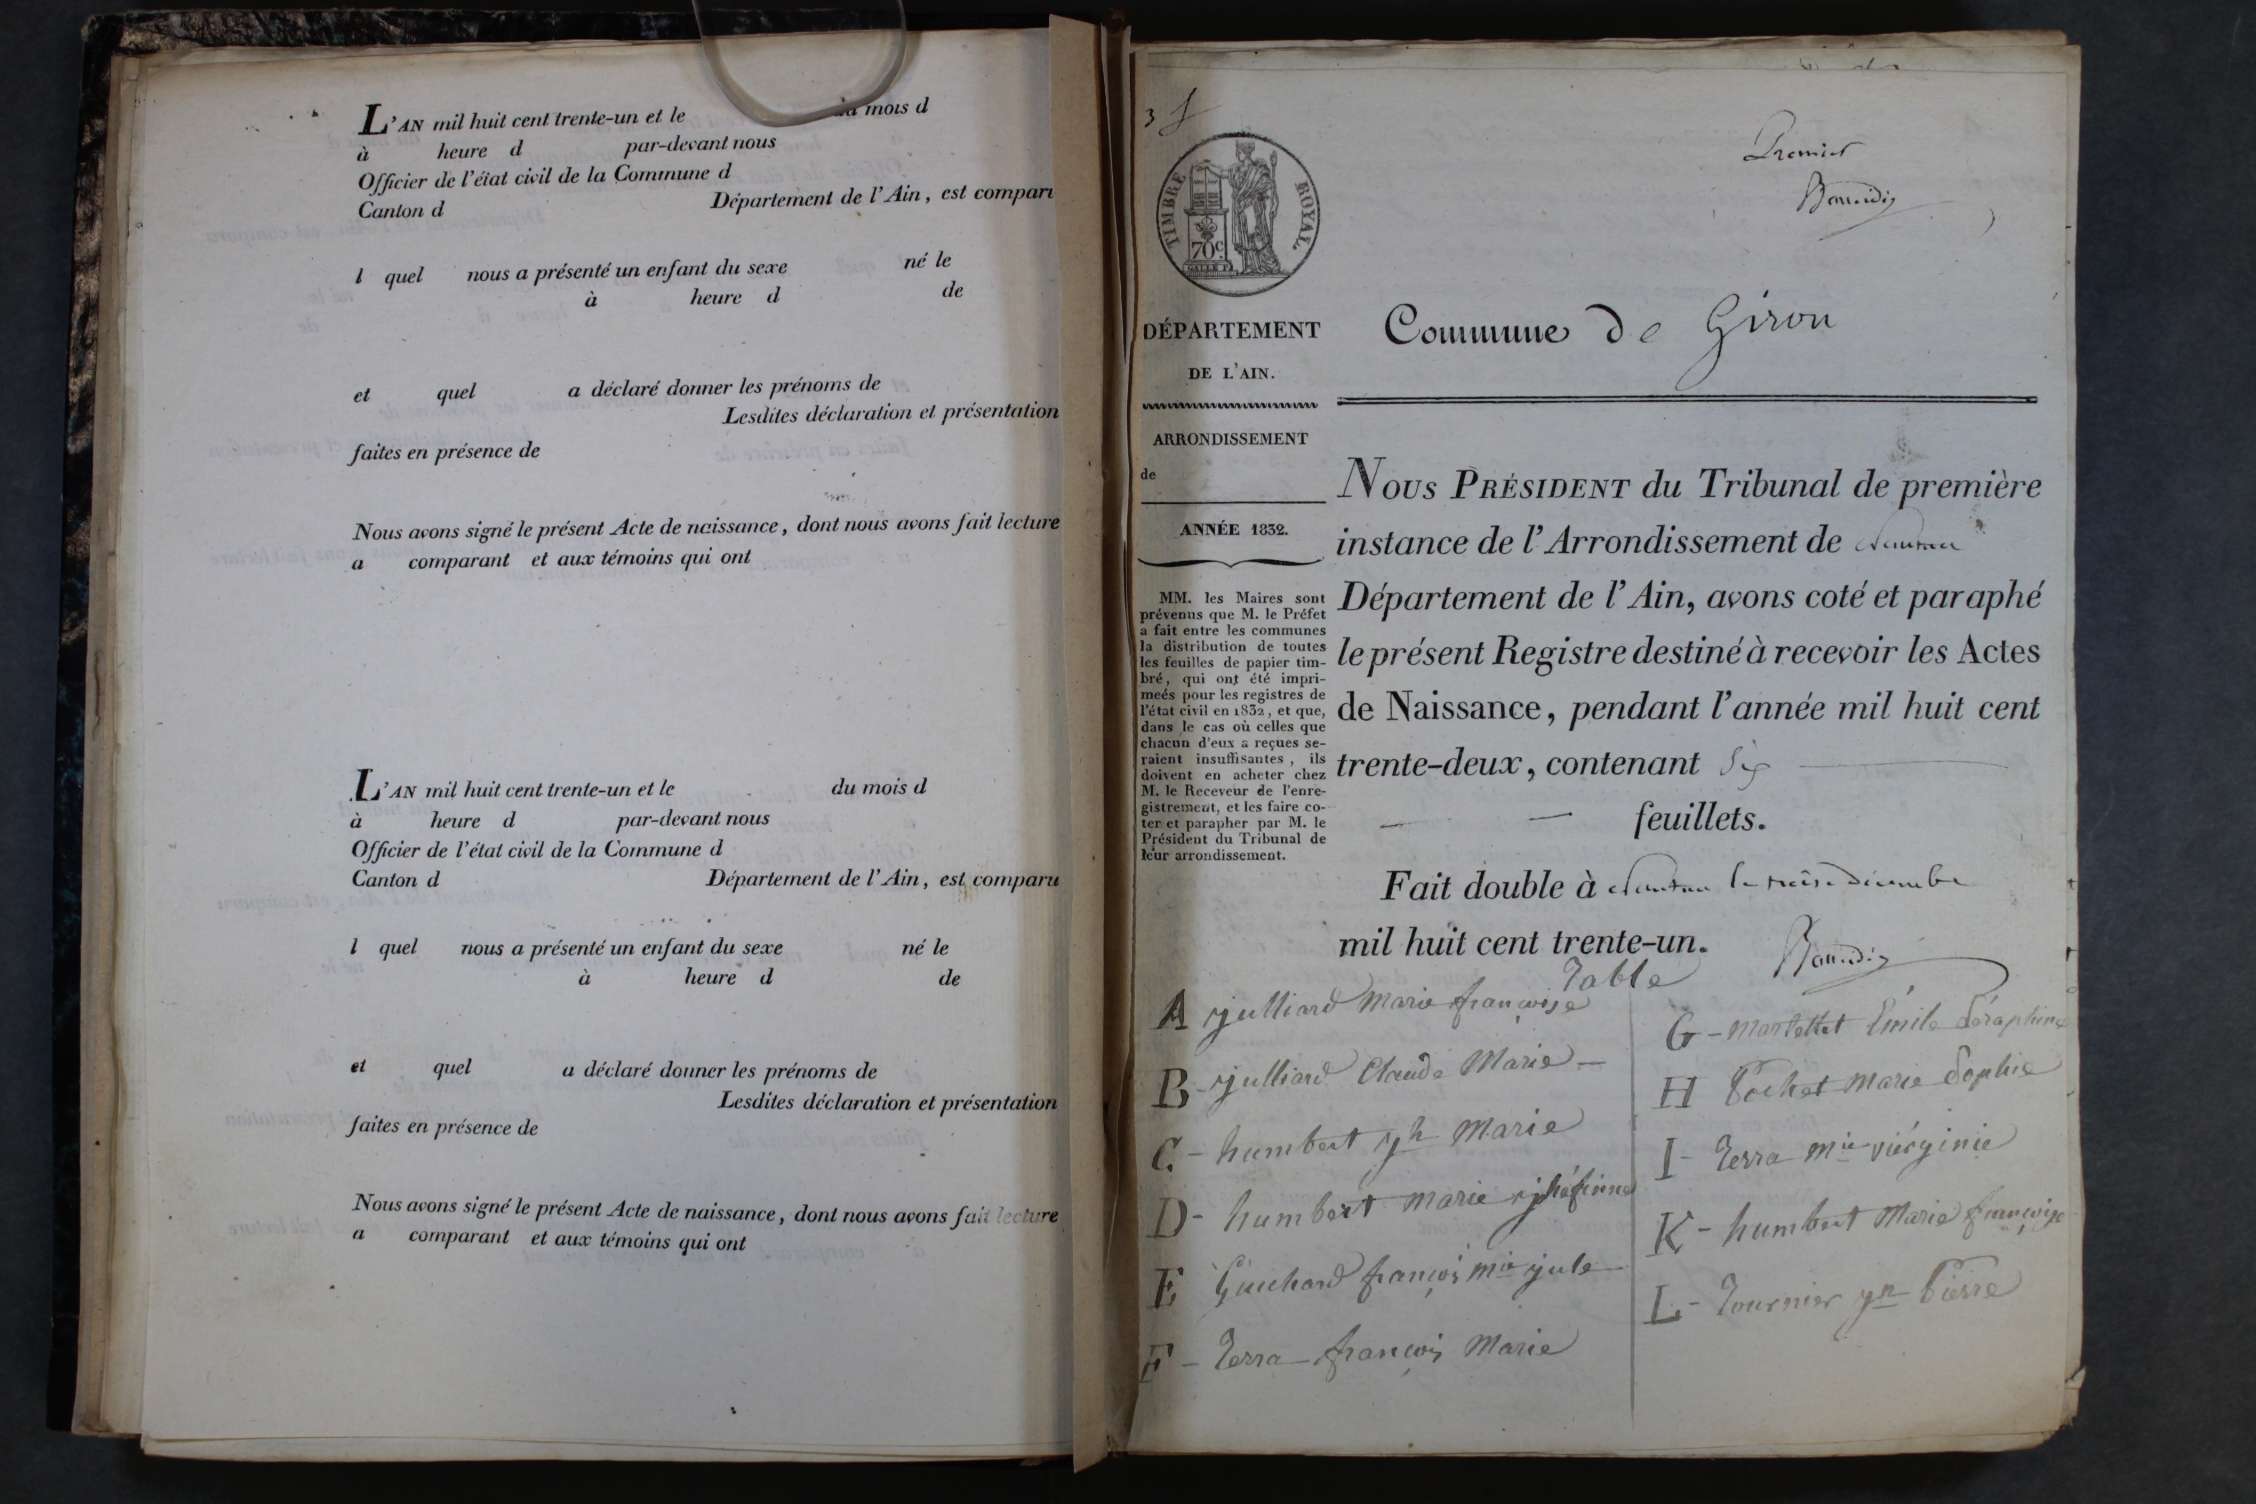 L'AN mil huit cent trente-un et le du mois d
à heure d par-devant nous
Officier de l'état civil de la Commune d
Canton d Département de l'Ain, est comparu
l quel nous a présenté un enfant du sexe né le
à heure d de
et quel a déclaré donner les prénoms de
Lesdites déclaration et présentation
faites en présence de
Nous avons signé le présent Acte de naissance, dont nous avons fait lecture
a comparant et aux témoins qui ont
L'AN mil huit cent trente-un et le du mois d
à heure d par-devant nous
Officier de l'état civil de la Commune d
Canton d Département de l'Ain, est comparu
l quel nous a présenté un enfant du sexe né le
à heure d de
et quel a déclaré donner les prénoms de
Lesdites déclaration et présentation
faites en présence de
Nous avons signé le présent Acte de naissance, dont nous avons fait lecture
a comparant et aux témoins qui ont
3 f
Premier
TIMBRE ROYAL.
70c.
DÉPARTEMENT
DE L'AIN.
ARRONDISSEMENT
de
ANNÉE 1832.
MM. les Maires sont
prévenus que M. le Préfet
a fait entre les communes
la distribution de toutes
les feuilles de papier tim-
bré, qui ont été impri-
meés pour les registres de
l'état civil en 1832, et que,
dans le cas où celles que
chacun d'eux a reçues se-
raient insuffisantes, ils
doivent en acheter chez
M. le Receveur de l'enre-
gistrement, et les faire co-
ter et parapher par M. le
Président du Tribunal de
leur arrondissement.
Commune de Giron
NOUS PRÉSIDENT du Tribunal de première
instance de l'Arrondissement de Nantua
Département de l'Ain, avons coté et paraphé
le présent Registre destiné à recevoir les Actes
de Naissance, pendant l'année mil huit cent
trente-deux, contenant Six
feuillets.
Fait double à Nantua le décembre
mil huit cent trente-un.
Table
A julliard Marie françoise
B - julliard Claude Marie -
C - humbert jh Marie
D - humbert marie
E Guichard françois mie jule
F - Terra françois Marie
G - Martellet Émile Séraphine
H Pochet marie Sophie
I - Terra mie virginie
K - humbert Marie françoise
L - Tournier jn Pierre